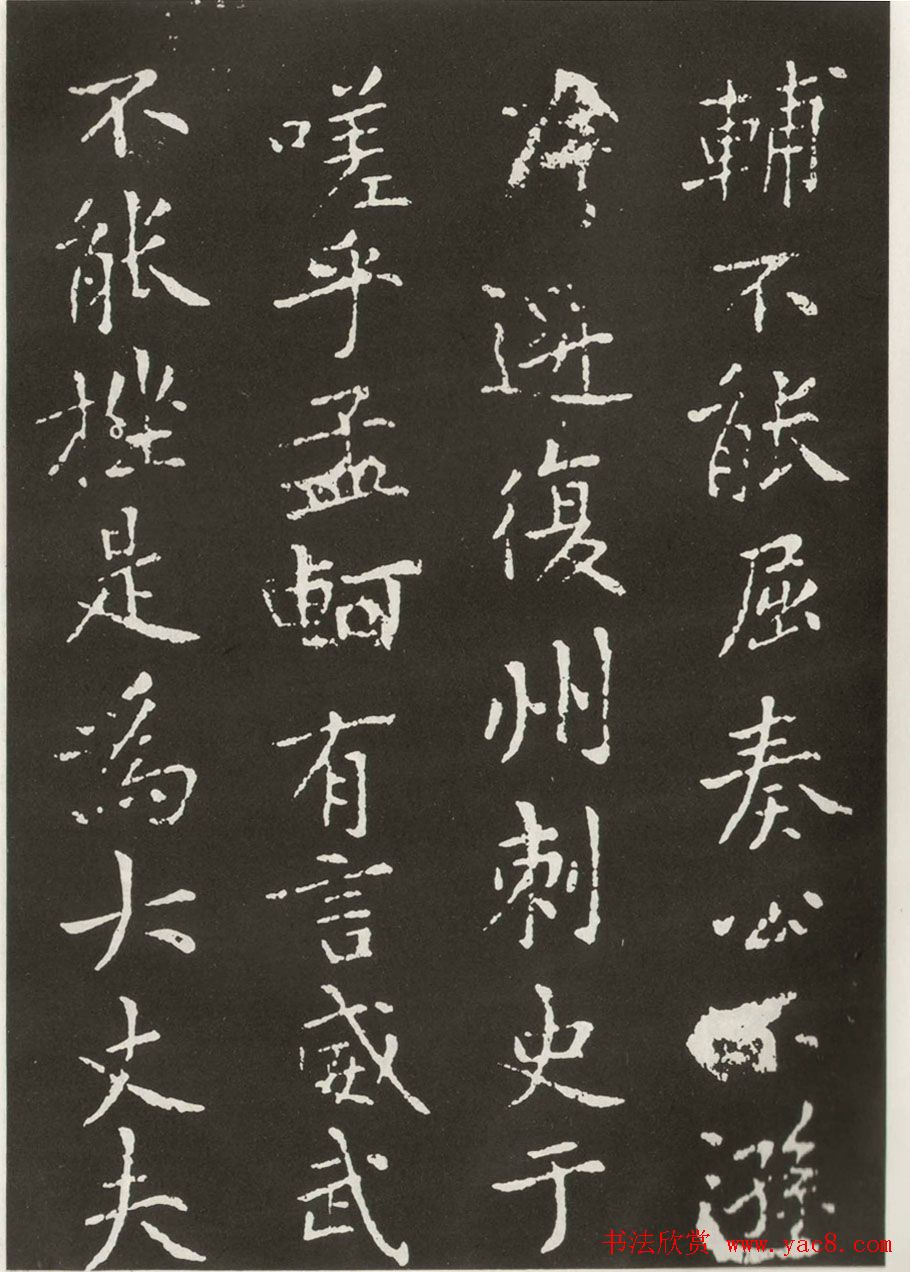 輔不能屈奏公遜
復州刺史于
嗟乎孟軻有言威武
不能挫是為大丈夫
书法欣赏 www.yac8.com